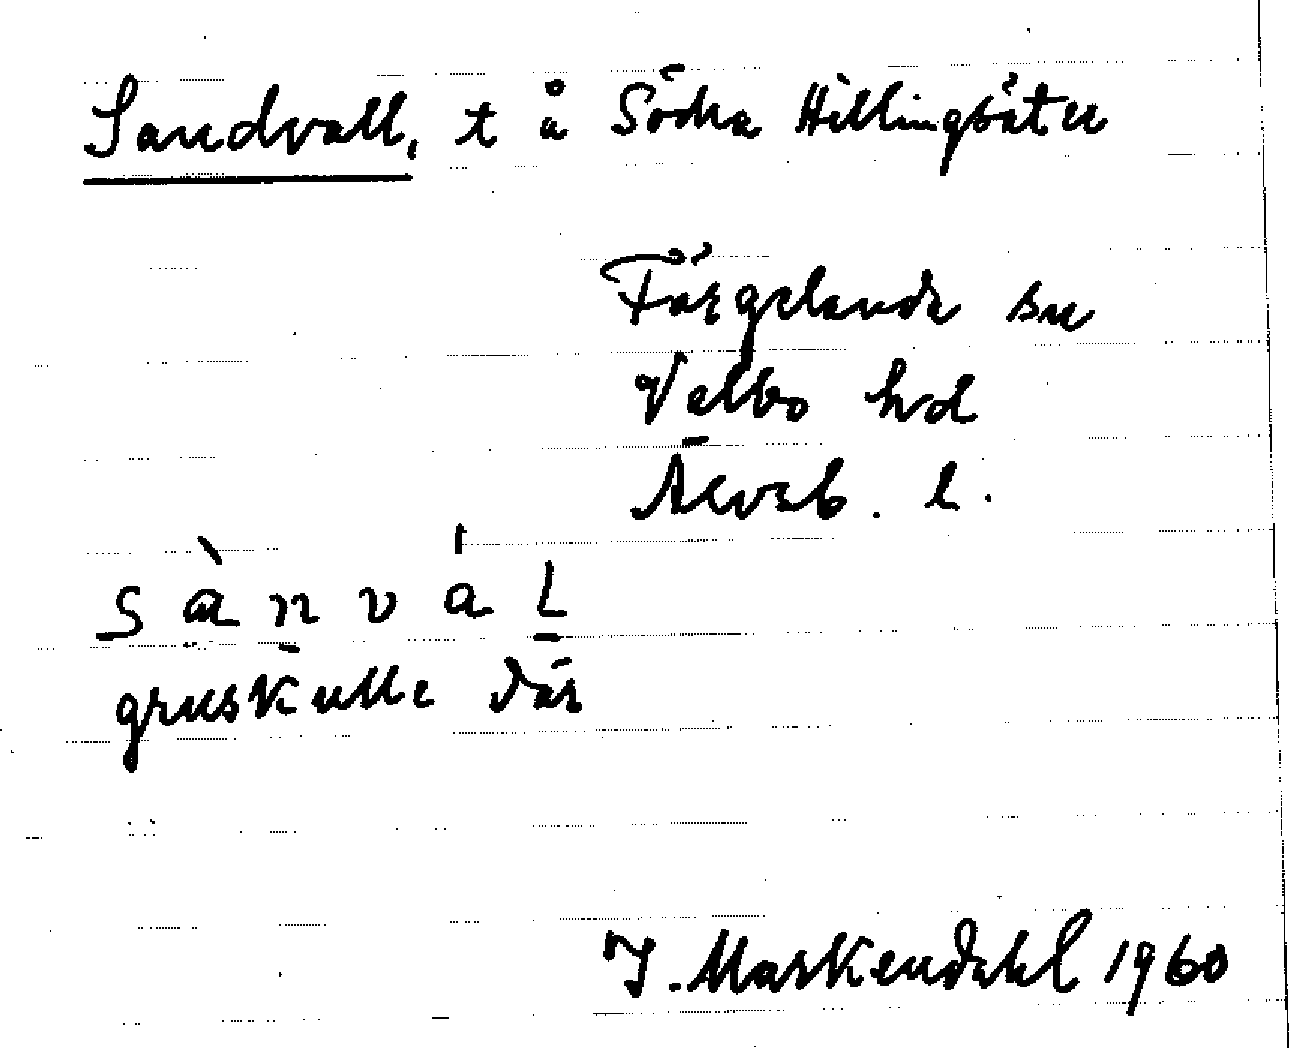 Sandvall, t å Södra Hillingsäter
Färgelanda sn
Valbo hd
Älvsb. l.
sànvál
gruskulle där
J. Markendahl 1960